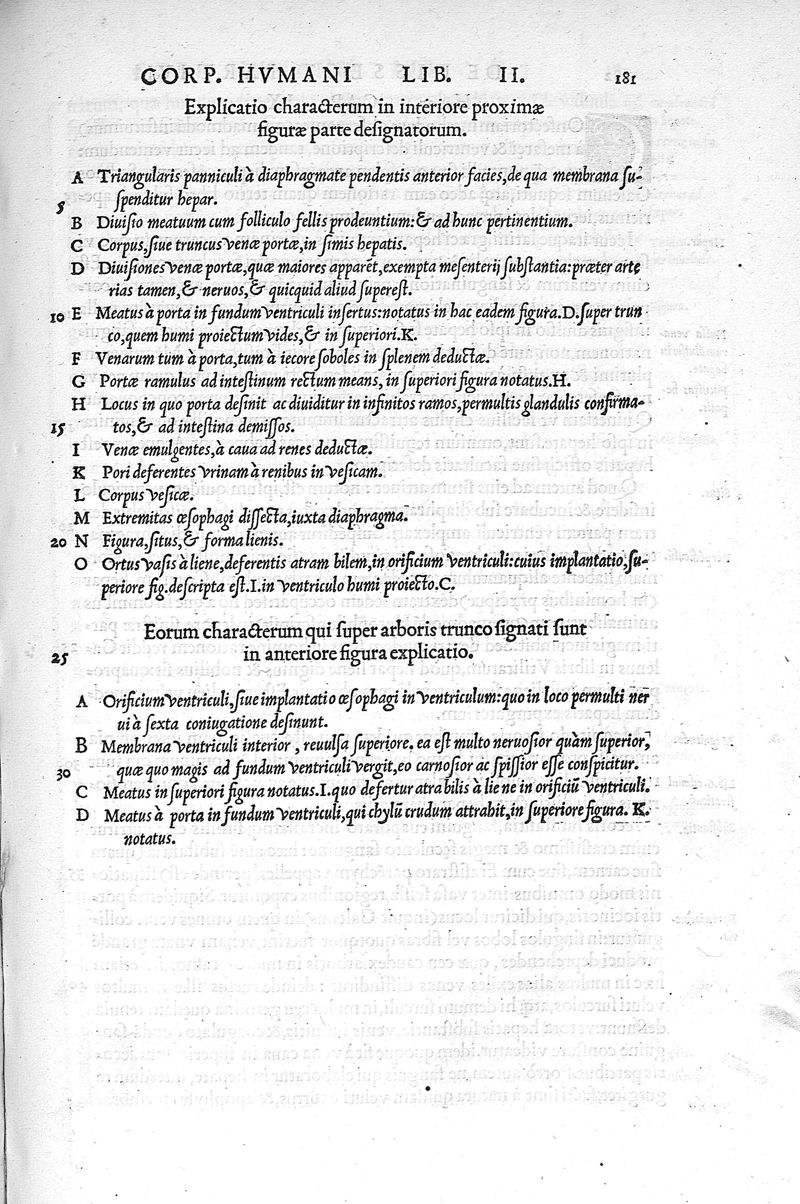 CORP. HVMANI LIB. II. 181
Explicatio characterum in interiore proximæ
figuræ parte designatorum.
A Triangularis panniculi à diaphragmate pendentis anterior facies, de qua membrana su-
5 spenditur hepar.
B Diuisio meatuum cum folliculo fellis prodeuntium: & ad hunc pertinentium.
C Corpus, siue truncus venæ portæ, in simis hepatis.
D Diuisiones venæ portæ, quæ maiores apparēt, exempta mesenterij substantia: præter arte
rias tamen, & neruos, & quicquid aliud superest.
10 E Meatus à porta in fundum ventriculi insertus: notatus in hac eadem figura. D. super trun
co, quem humi proiectum vides, & in superiori. K.
F Venarum tum à porta, tum à iecore soboles in splenem deductæ.
G Portæ ramulus ad intestinum rectum means, in superiori figura notatus. H.
H Locus in quo porta desinit ac diuiditur in infinitos ramos, permultis glandulis confirma-
15 tos, & ad intestina demissos.
I Venæ emulgentes, à caua ad renes deductæ.
K Pori deferentes vrinam à renibus in vesicam.
L Corpus vesicæ.
M Extremitas œsophagi dissecta, iuxta diaphragma.
20 N Figura, situs, & forma lienis.
O Ortus vasis à liene, deferentis atram bilem, in orificium ventriculi: cuius implantatio, su-
periore fig. descripta est. I. in ventriculo humi proiecto. C.
Eorum characterum qui super arboris trunco signati sunt
25 in anteriore figura explicatio.
A Orificium ventriculi, siue implantatio œsophagi in ventriculum: quo in loco permulti ner
ui à sexta coniugatione desinunt.
B Membrana ventriculi interior, reuulsa superiore. ea est multo neruosior quàm superior,
30 quæ quo magis ad fundum ventriculi vergit, eo carnosior ac spissior esse conspicitur.
C Meatus in superiori figura notatus. I. quo defertur atra bilis à liene in orificiū ventriculi.
D Meatus à porta in fundum ventriculi, qui chylū crudum attrahit, in superiore figura. K.
notatus.